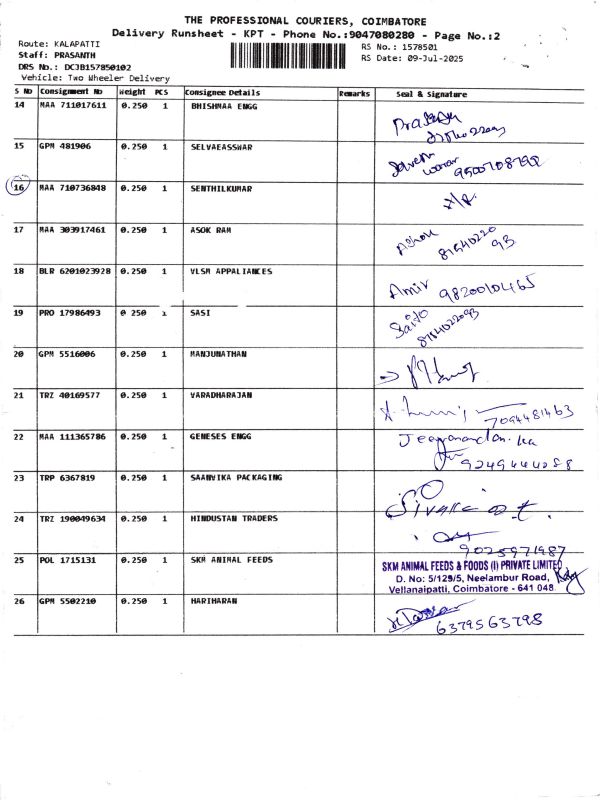 THE PROFESSIONAL COURIERS, COIMBATORE
Delivery Runsheet - KPT - Phone No.:9047080280 - Page No.:2
Route: KALAPATTI
Staff: PRASANTH
DRS No.: DCJB157850102
Vehicle: Two Wheeler Delivery
RS No.: 1578501
RS Date: 09-Jul-2025
S No Consignment No Weight PCS Consignee Details Remarks Seal & Signature
14 MAA 711017611 0.250 1 BHISHMAA ENGG
15 GPM 481906 0.250 1 SELVAEASSWAR
16 MAA 710736848 0.250 1 SENTHILKUMAR
17 MAA 303917461 0.250 1 ASOK RAM Ashok 8754022093
18 BLR 6201023928 0.250 1 VLSM APPALIANCES Amir 9820010465
19 PRO 17986493 0 250 1 SASI 8754022093
20 GPM 5516006 0.250 1 MANJUNATHAN
21 TRZ 40169577 0.250 1 VARADHARAJAN 7094481463
22 MAA 111365786 0.250 1 GENESES ENGG 9249444088
23 TRP 6367819 0.250 1 SAANVIKA PACKAGING
24 TRZ 190049634 0.250 1 HINDUSTAN TRADERS 9025971987
25 POL 1715131 0.250 1 SKM ANIMAL FEEDS
SKM ANIMAL FEEDS & FOODS (I) PRIVATE LIMITED
D. No: 5/129/5, Neelambur Road,
Vellanaipatti, Coimbatore - 641 048.
26 GPM 5502210 0.250 1 HARIHARAN 6379563798